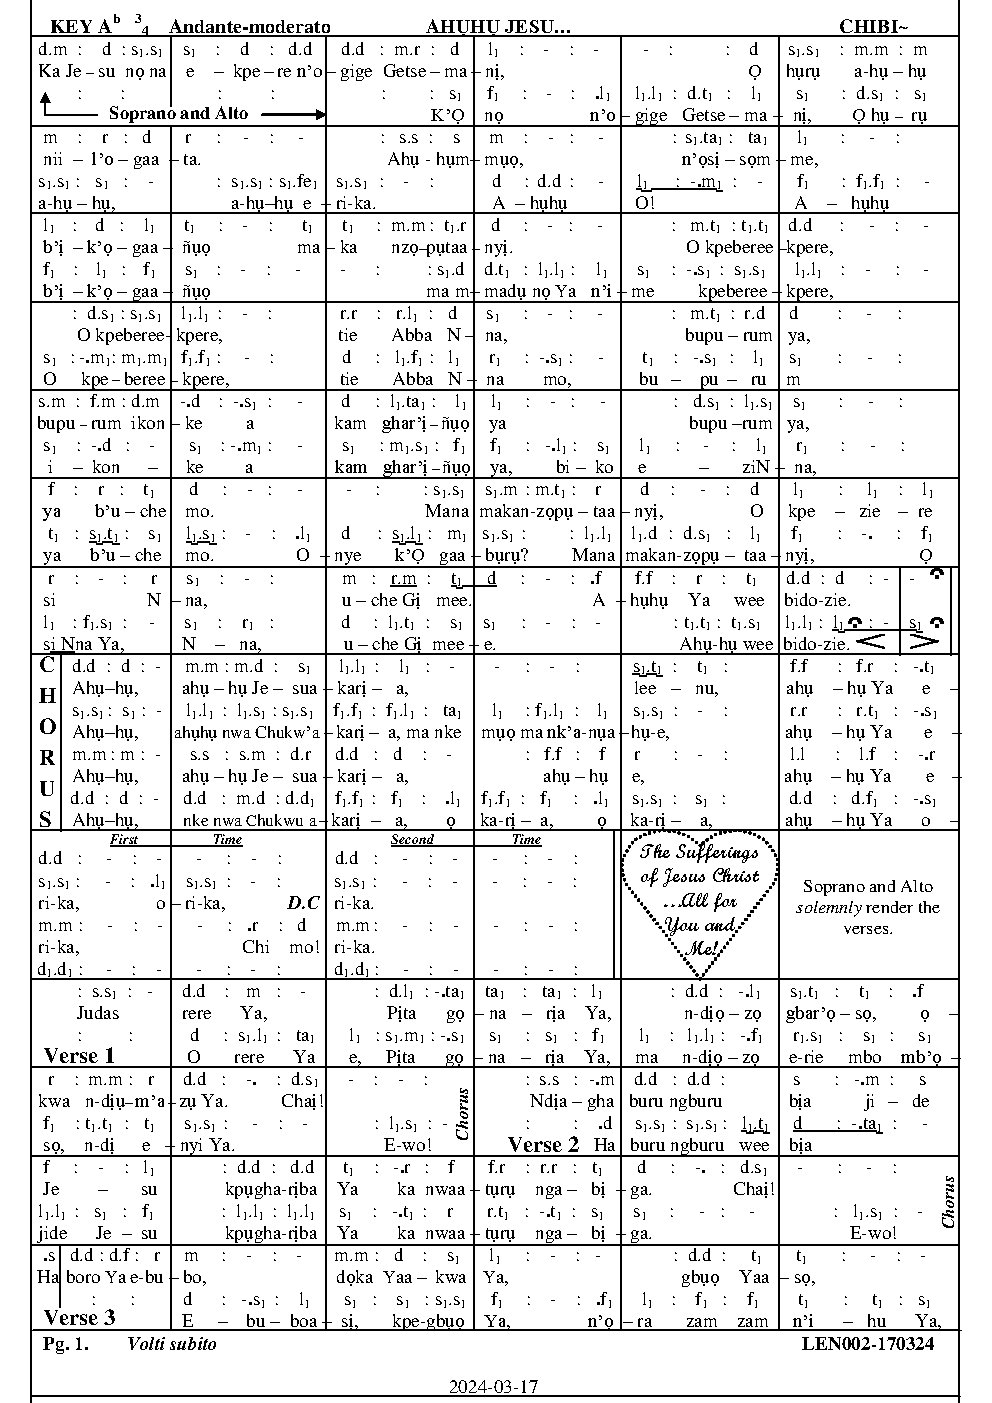 KEY Aᵇ ³₄ Andante-moderato AHỤHỤ JESU... CHIBI~
d.m : d : s₁.s₁ s₁ : d : d.d d.d : m.r : d l₁ : - : - - : : d s₁.s₁ : m.m : m
Ka Je – su nọ na e – kpe – re n'o – gige Getse – ma – nị, Ọ hụrụ a-hụ – hụ
: : : : : : s₁ f₁ : - : .l₁ l₁.l₁ : d.t₁ : l₁ s₁ : d.s₁ : s₁
Soprano and Alto K'Ọ nọ n'o – gige Getse – ma – nị, Ọ hụ – rụ
m : r : d r : - : - : s.s : s m : - : - : s₁.ta₁ : ta₁ l₁ : - :
nii – l'o – gaa – ta. Ahụ - hụm – mụọ, n'ọsị – sọm – me,
s₁.s₁ : s₁ : - : s₁.s₁ : s₁.fe₁ s₁.s₁ : - : d : d.d : - l₁ : -.m₁ : - f₁ : f₁.f₁ : -
a-hụ – hụ, a-hụ–hụ e – ri-ka. A – hụhụ O! A – hụhụ
l₁ : d : l₁ t₁ : - : t₁ t₁ : m.m : t₁.r d : - : - : m.t₁ : t₁.t₁ d.d : - : -
b'ị – k'ọ – gaa – ñụọ ma – ka nzọ–pụtaa – nyị. O kpeberee – kpere,
f₁ : l₁ : f₁ s₁ : - : - - : : s₁.d d.t₁ : l₁.l₁ : l₁ s₁ : -.s₁ : s₁.s₁ l₁.l₁ : - : -
b'ị – k'ọ – gaa – ñụọ ma m – madụ nọ Ya n'i – me kpeberee – kpere,
: d.s₁ : s₁.s₁ l₁.l₁ : - : r.r : r.l₁ : d s₁ : - : - : m.t₁ : r.d d : - :
O kpeberee- kpere, tie Abba N – na, bupu – rum ya,
s₁ : -.m₁ : m₁.m₁ f₁.f₁ : - : d : l₁.f₁ : l₁ r₁ : -.s₁ : - t₁ : -.s₁ : l₁ s₁ : - :
O kpe – beree – kpere, tie Abba N – na mo, bu – pu – ru m
s.m : f.m : d.m -.d : -.s₁ : - d : l₁.ta₁ : l₁ l₁ : - : - : d.s₁ : l₁.s₁ s₁ : - :
bupu – rum ikon – ke a kam ghar'ị – ñụọ ya bupu – rum ya,
s₁ : -.d : - s₁ : -.m₁ : - s₁ : m₁.s₁ : f₁ f₁ : -.l₁ : s₁ l₁ : - : l₁ r₁ : - :
i – kon – ke a kam ghar'ị – ñụọ ya, bi – ko e – ziN – na,
f : r : t₁ d : - : - - : : s₁.s₁ s₁.m : m.t₁ : r d : - : d l₁ : l₁ : l₁
ya b'u – che mo. Mana makan-zọpụ – taa – nyị, O kpe – zie – re
t₁ : s₁.t₁ : s₁ l₁.s₁ : - : .l₁ d : s₁.l₁ : m₁ s₁.s₁ : : l₁.l₁ l₁.d : d.s₁ : l₁ f₁ : -. : f₁
ya b'u – che mo. O – nye k'Ọ gaa – bụrụ? Mana makan-zọpụ – taa – nyị, Ọ
r : - : r s₁ : - : m : r.m : t₁ d : - : .f f.f : r : t₁ d.d : d : - -
si N – na, u – che Gị mee. A – hụhụ Ya wee bido-zie.
l₁ : f₁.s₁ : s₁ : r₁ : d : l₁.t₁ : s₁ s₁ : - : : t₁.t₁ : t₁.s₁ l₁.l₁ : l₁ : - s₁
si Nna Ya, N – na, u – che Gị mee – e. Ahụ-hụ wee bido-zie. < >
CHORUS
d.d : d : - m.m : m.d : s₁ l₁.l₁ : l₁ : - - : - : s₁.t₁ : t₁ : f.f : f.r : -.t₁
Ahụ–hụ, ahụ – hụ Je – sua – karị – a, lee – nu, ahụ – hụ Ya e –
s₁.s₁ : s₁ : - l₁.l₁ : l₁.s₁ : s₁.s₁ f₁.f₁ : f₁.l₁ : ta₁ l₁ : f₁.l₁ : l₁ s₁.s₁ : - : r.r : r.t₁ : -.s₁
Ahụ–hụ, ahụhụ nwa Chukw'a – karị – a, ma nke mụọ ma nk'a-nụa – hụ-e, ahụ – hụ Ya e –
m.m : m : - s.s : s.m : d.r d.d : d : - : f.f : f r : - : l.l : l.f : -.r
Ahụ–hụ, ahụ – hụ Je – sua – karị – a, ahụ – hụ e, ahụ – hụ Ya e –
d.d : d : - d.d : m.d : d.d₁ f₁.f₁ : f₁ : .l₁ f₁.f₁ : f₁ : .l₁ s₁.s₁ : s₁ : d.d : d.f₁ : -.s₁
Ahụ–hụ, nke nwa Chukwu a – karị – a, ọ ka-rị – a, ọ ka-rị – a, ahụ – hụ Ya o –
First Time Second Time
d.d : - : - - : - : d.d : - : - - : - :
s₁.s₁ : - : .l₁ s₁.s₁ : - : s₁.s₁ : - : - - : - :
ri-ka, o – ri-ka, D.C ri-ka.
m.m : - : - : .r : d m.m : - : - - : - :
ri-ka, Chi mo! ri-ka.
d₁.d₁ : - : - - : - : d₁.d₁ : - : - - : - :
The Sufferings
of Jesus Christ
...All for
You and
Me!
Soprano and Alto
solemnly render the
verses.
: s.s₁ : - d.d : m : - : d.l₁ : -.ta₁ ta₁ : ta₁ : l₁ : d.d : -.l₁ s₁.t₁ : t₁ : .f
Judas rere Ya, Pịta gọ – na – rịa Ya, n-dịọ – zọ gbar'ọ – sọ, ọ –
: : d : s₁.l₁ : ta₁ l₁ : s₁.m₁ : -.s₁ s₁ : s₁ : f₁ l₁ : l₁.l₁ : -.f₁ r₁.s₁ : s₁ : s₁
Verse 1 O rere Ya e, Pịta gọ – na – rịa Ya, ma n-dịọ – zọ e-rie mbo mb'ọ –
r : m.m : r d.d : -. : d.s₁ - : - : : s.s : -.m d.d : d.d : s : -.m : s
kwa n-dịụ–m'a – zụ Ya. Chai! Chorus Ndịa – gha buru ngburu bịa ji – de
f₁ : t₁.t₁ : t₁ s₁.s₁ : - : - : l₁.s₁ : - : : .d s₁.s₁ : s₁.s₁ : l₁.t₁ d : -.ta₁ : -
sọ, n-dị e – nyi Ya. E-wo! Verse 2 Ha buru ngburu wee bịa
f : - : l₁ : d.d : d.d t₁ : -.r : f f.r : r.r : t₁ d : -. : d.s₁ - : - :
Je – su kpụgha-rịba Ya ka nwaa – tụrụ nga – bị – ga. Chai! Chorus
l₁.l₁ : s₁ : f₁ : l₁.l₁ : l₁.l₁ s₁ : -.t₁ : r r.t₁ : -.t₁ : s₁ s₁ : - : - : l₁.s₁ : -
jide Je – su kpụgha-rịba Ya ka nwaa – tụrụ nga – bị – ga. E-wo!
.s d.d : d.f : r m : - : - m.m : d : s₁ l₁ : - : - : d.d : t₁ t₁ : - : -
Ha boro Ya e-bu – bo, dọka Yaa – kwa Ya, gbụọ Yaa – sọ,
: : d : -.s₁ : l₁ s₁ : s₁ : s₁.s₁ f₁ : - : .f₁ l₁ : f₁ : f₁ t₁ : t₁ : s₁
Verse 3 E – bu – boa – si, kpe-gbụọ Ya, n'ọ – ra zam zam n'i – hu Ya,
Pg. 1. Volti subito LEN002-170324
2024-03-17